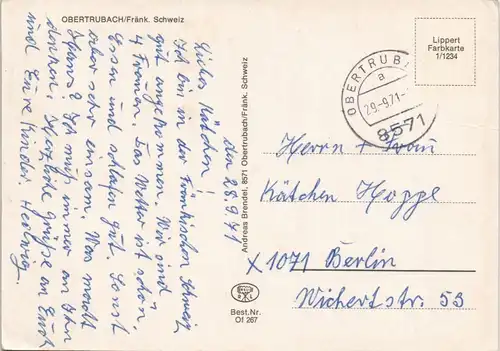 OBERTRUBACH/Fränk. Schweiz
Lippert
Farbkarte
1/1234
OBERTRUB
a
29.-9.71.-
8571
den 28.9.71
Liebes Kätchen!
Ich bin in der Fränkischen Schweiz
gut angekommen. Wir sind
4 Frauen. Das Wetter ist schön,
Essen und schlafen gut. Sonst
aber sehr einsam. Was macht
Hans? Ich muß immer an Ihn
denken. Herzliche Grüße an Euch
und Eure Kinder. Hedwig.
Andreas Brendel, 8571 Obertrubach/Fränk. Schweiz
Herrn + Frau
Kätchen Hoppe
X 1071 Berlin
Wichertstr. 53
Best.Nr.
Of 267